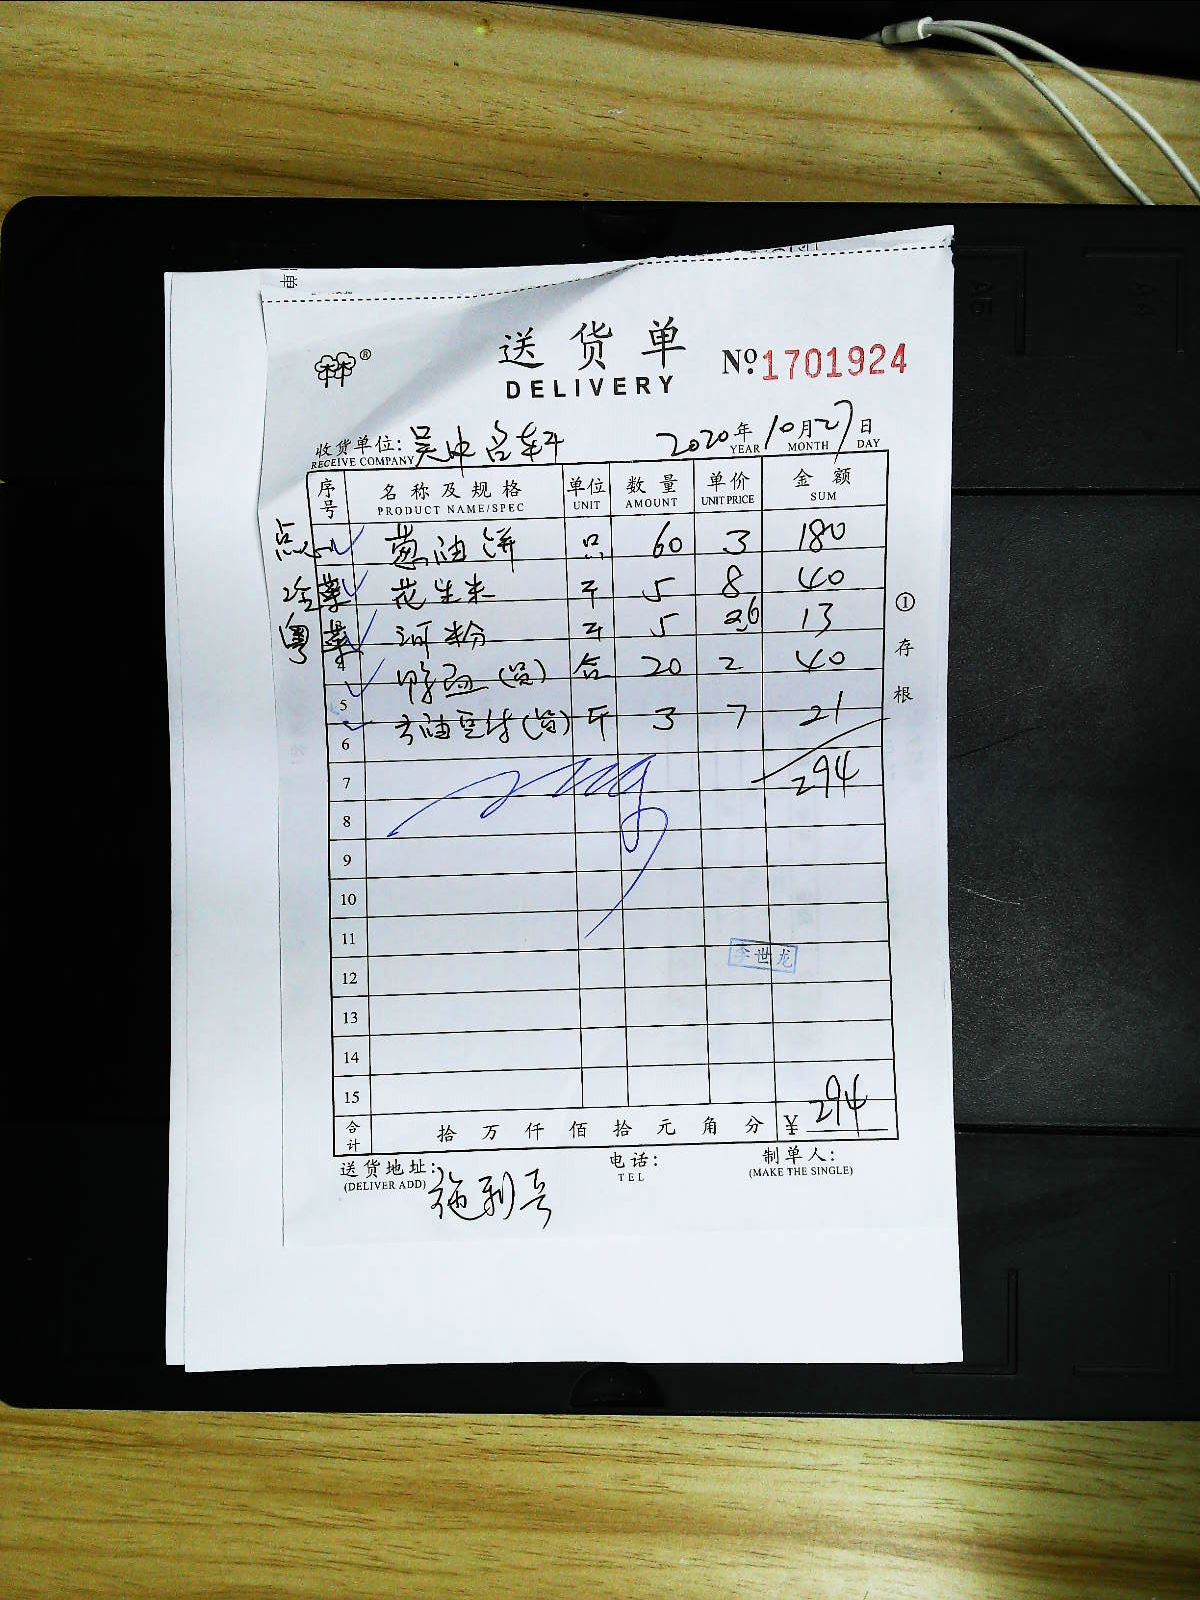 送货单
DELIVERY
№ 1701924
®
收货单位: 吴 轩 2020年10月27日
RECEIVE COMPANY YEAR MONTH DAY
序号 名称及规格 单位 数量 单价 金额
PRODUCT NAME/SPEC UNIT AMOUNT UNIT PRICE SUM
点心 葱油饼 只 60 3 180
冷菜 花生米 斤 5 8 40
粤菜 河粉 斤 5 2.6 13
4 鸭血(贸) 合 20 2 40
5 油豆付 斤 3 7 21
6
7 294
8
9
10
11
12 李世龙
13
14
15
合计 拾万仟佰拾元角分 ¥294
①存根
送货地址: 电话: 制单人:
(DELIVER ADD) TEL (MAKE THE SINGLE)
施利